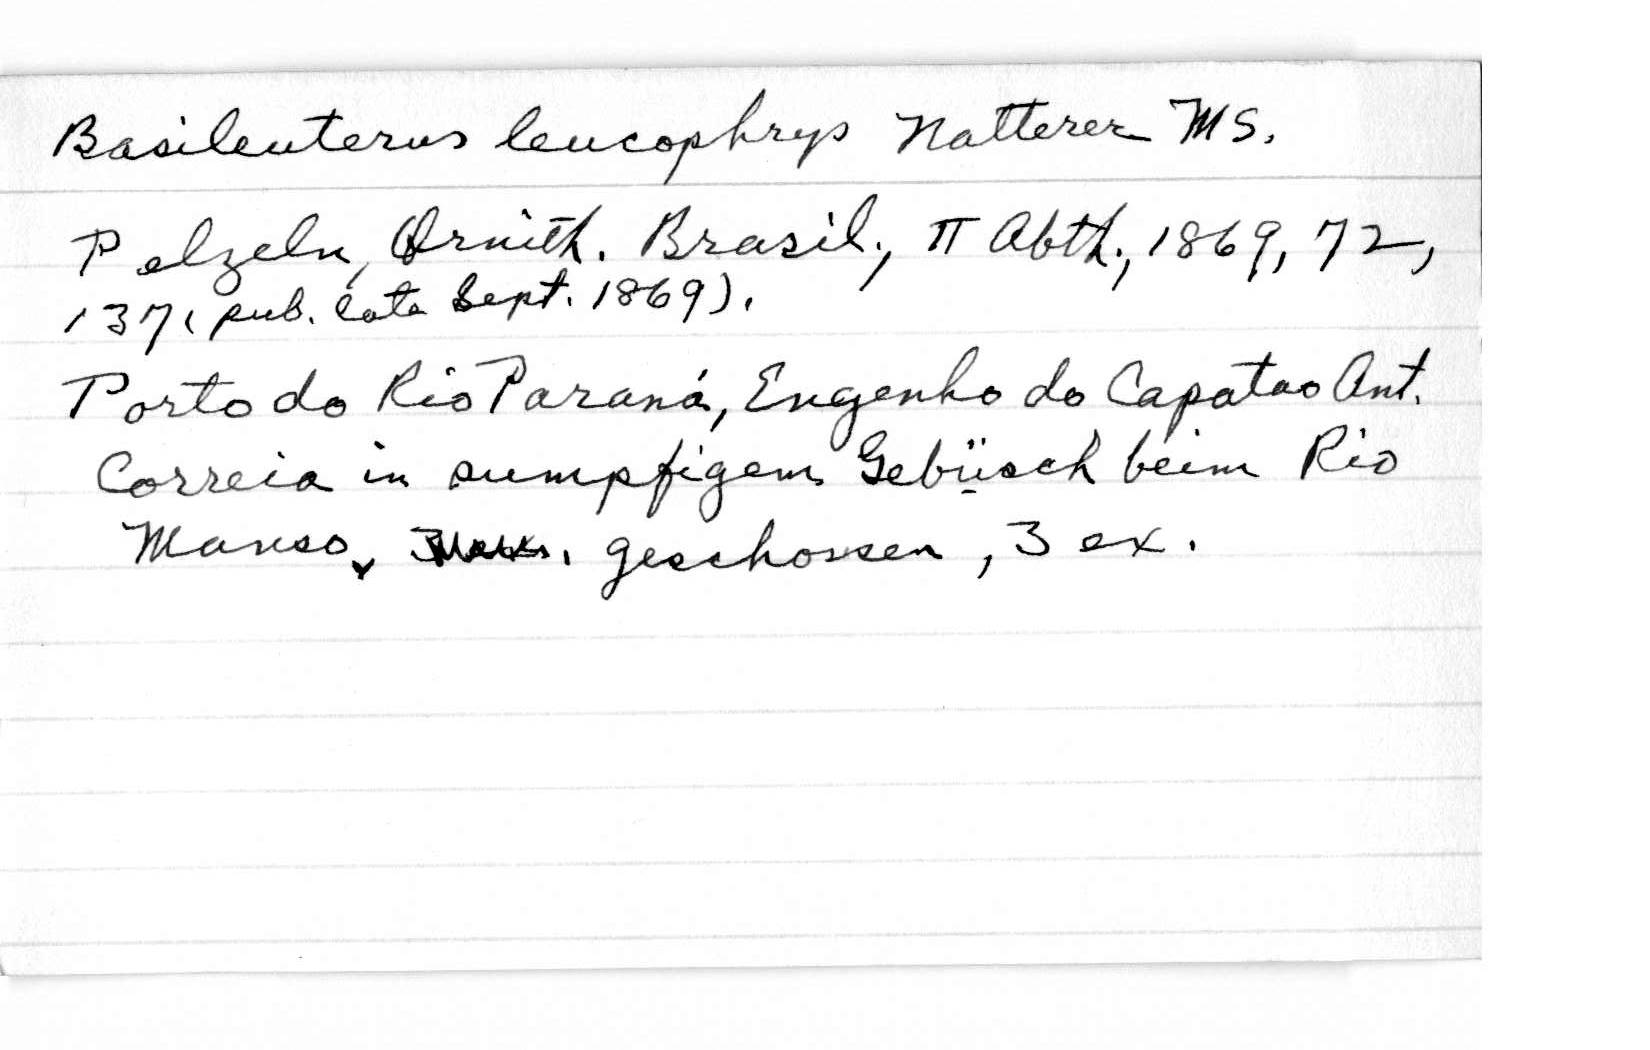 Basileuterus leucophrys Natterer MS.
Pelzeln, Ornith. Brasil., II Abth., 1869, 72,
137 (pub. late Sept. 1869).
Porto do Rio Paraná, Engenho do Capatao Ant.
Correia in sumpfigem Gebüsch beim Rio
Manso, geschossen, 3 ex.